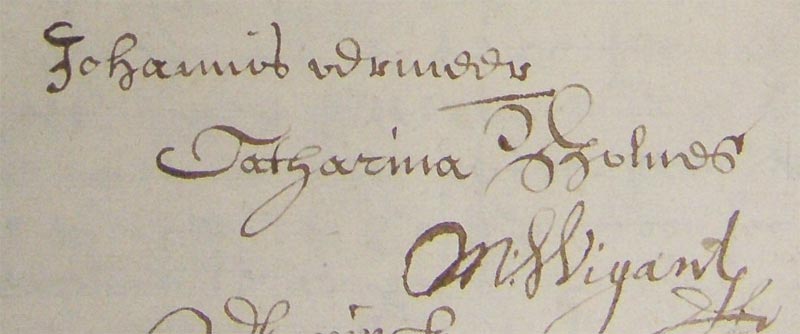 Johannis vermeer
Catharina Bolnes
M: Wigant